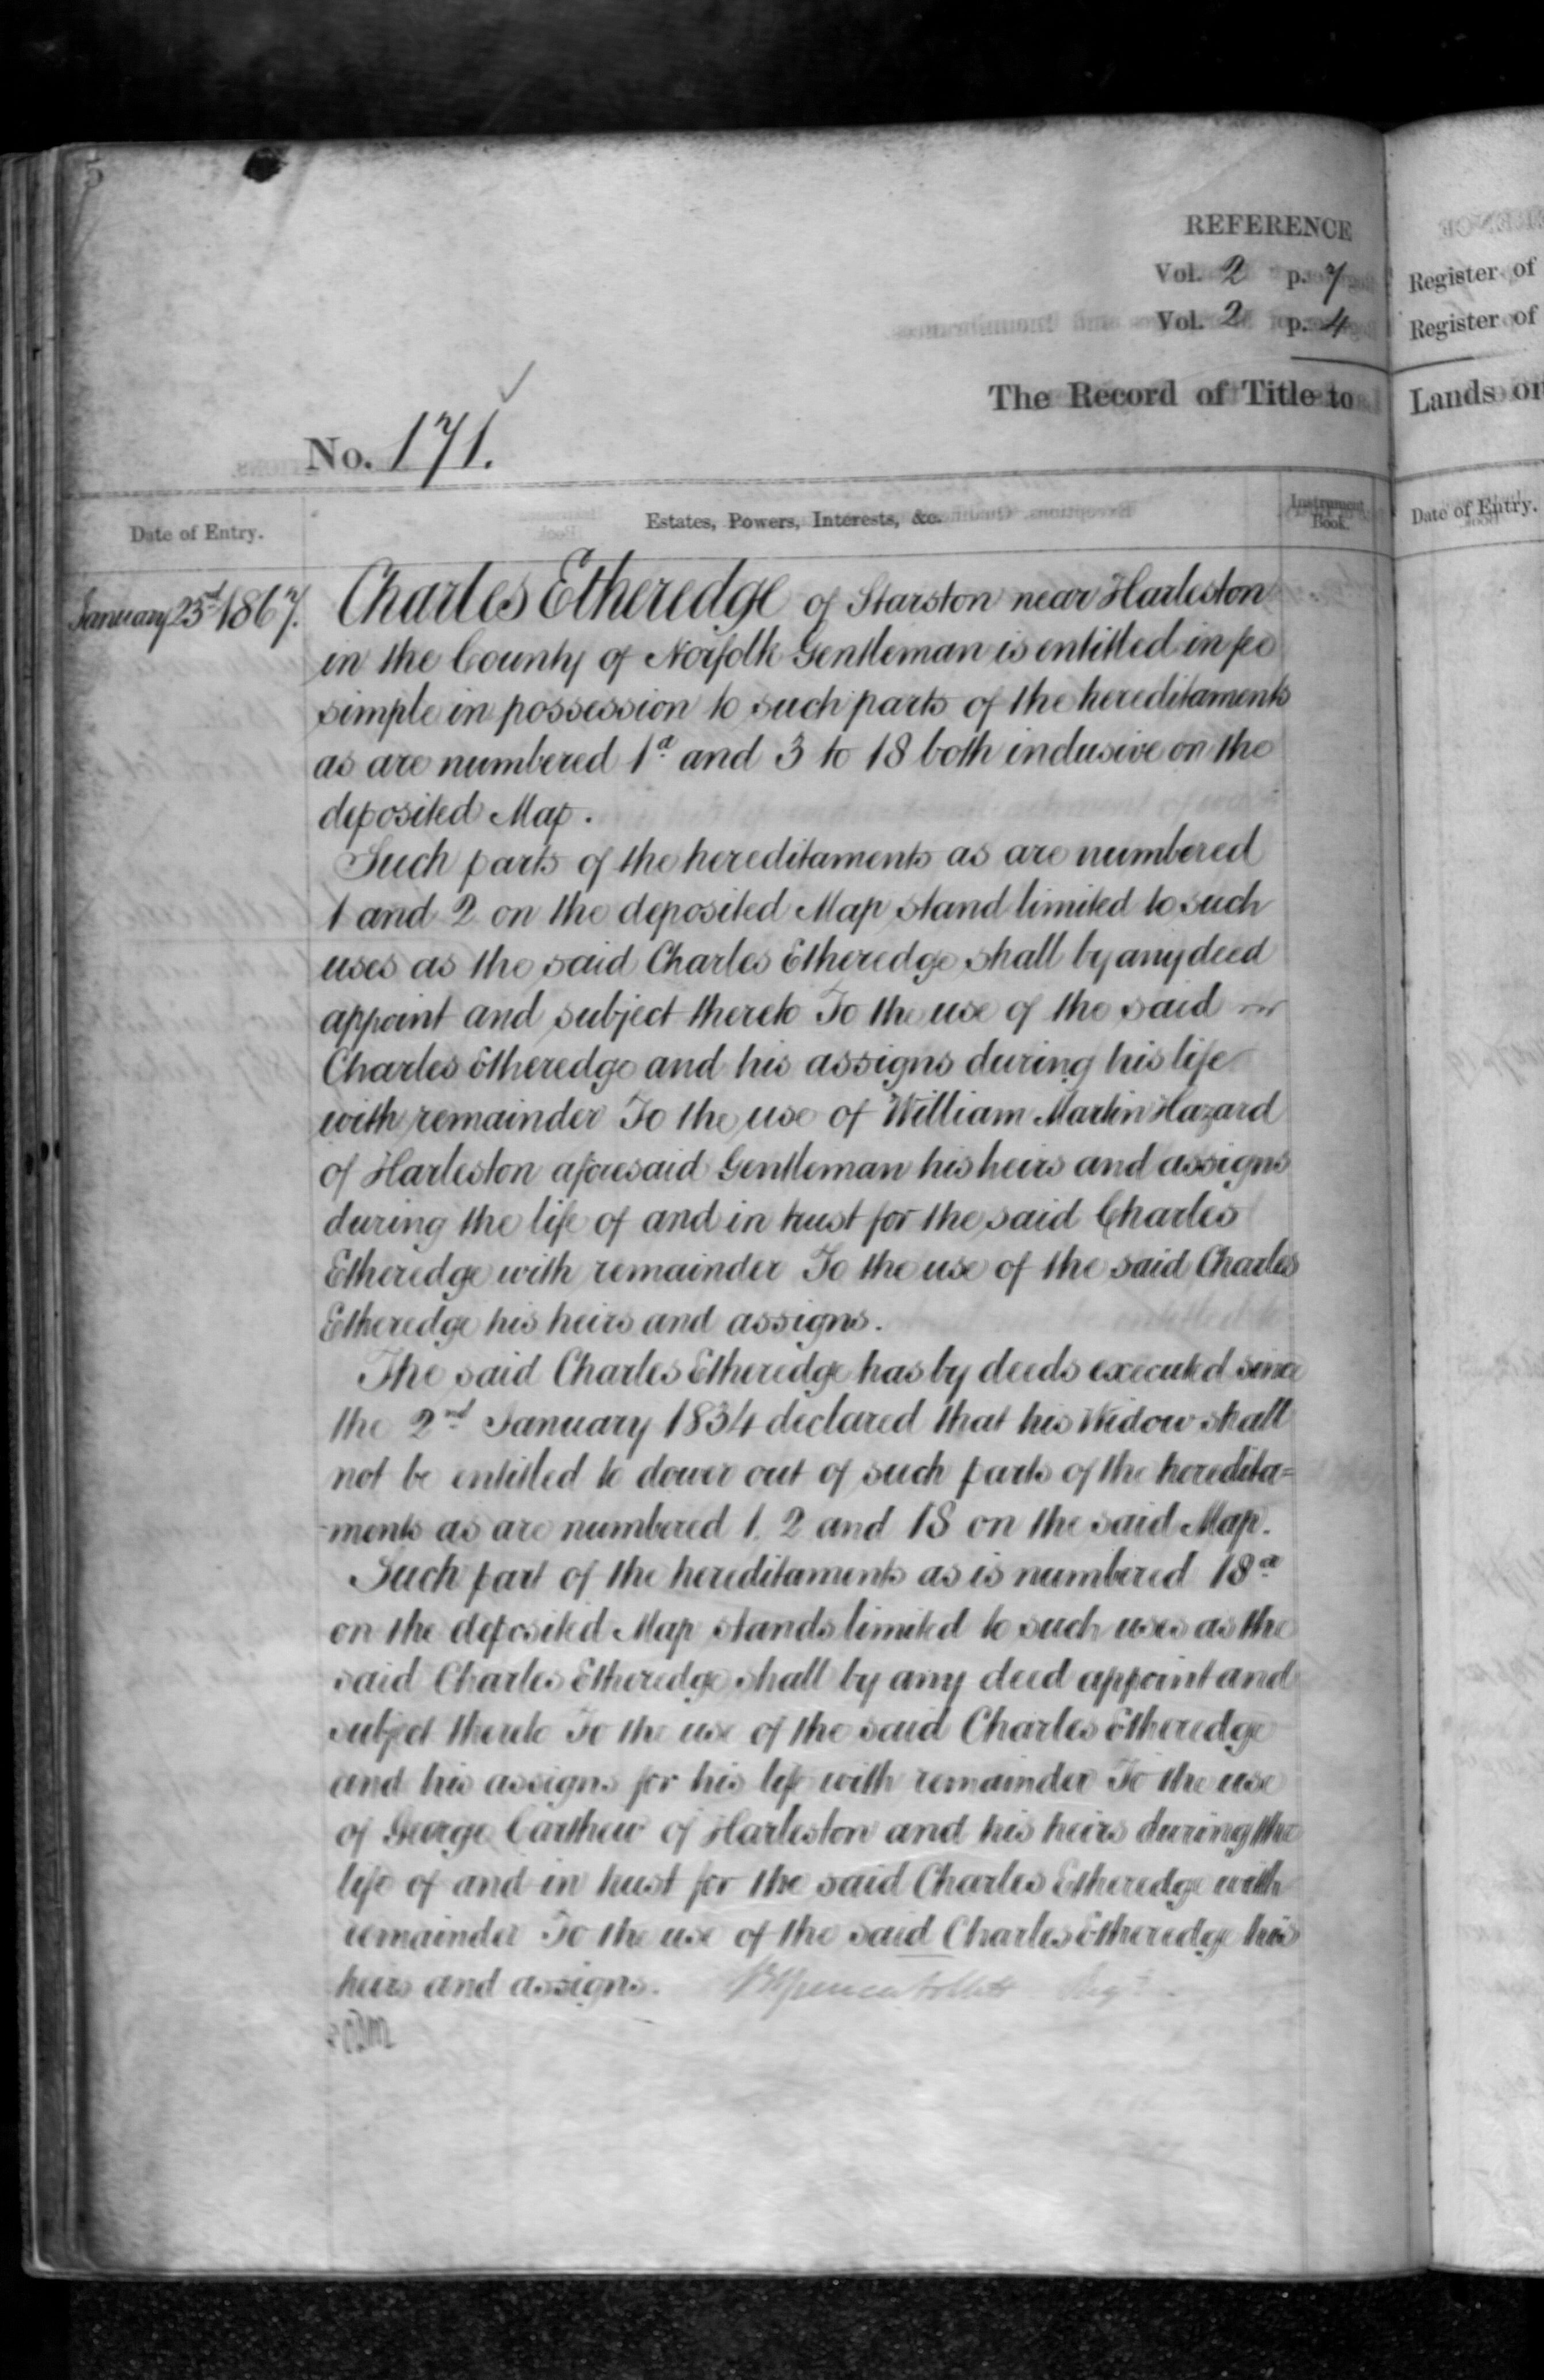 REFERENCE
Vol. 2 p. 7
Vol. 2 p. 4
The Record of Title to
No. 171.
Date of Entry.
Estates, Powers, Interests, &c.
Instrument Book.
January 23rd 1867.
Charles Etheredge of Starston near Harleston
in the County of Norfolk Gentleman is entitled in fee
simple in possession to such parts of the hereditaments
as are numbered 1a and 3 to 18 both inclusive on the
deposited Map.
Such parts of the hereditaments as are numbered
1 and 2 on the deposited Map stand limited to such
uses as the said Charles Etheredge shall by any deed
appoint and subject thereto To the use of the said
Charles Etheredge and his assigns during his life
with remainder To the use of William Martin Hazard
of Harleston aforesaid Gentleman his heirs and assigns
during the life of and in trust for the said Charles
Etheredge with remainder To the use of the said Charles
Etheredge his heirs and assigns.
The said Charles Etheredge has by deeds executed since
the 2nd January 1834 declared that his Widow shall
not be entitled to dower out of such parts of the heredita=
-ments as are numbered 1. 2 and 18 on the said Map.
Such part of the hereditaments as is numbered 18a
on the deposited Map stands limited to such uses as the
said Charles Etheredge shall by any deed appoint and
subject thereto To the use of the said Charles Etheredge
and his assigns for his life with remainder To the use
of George Carthew of Harleston and his heirs during the
life of and in trust for the said Charles Etheredge with
remainder To the use of the said Charles Etheredge his
heirs and assigns.
Register of
Register of
Lands or
Date of Entry.